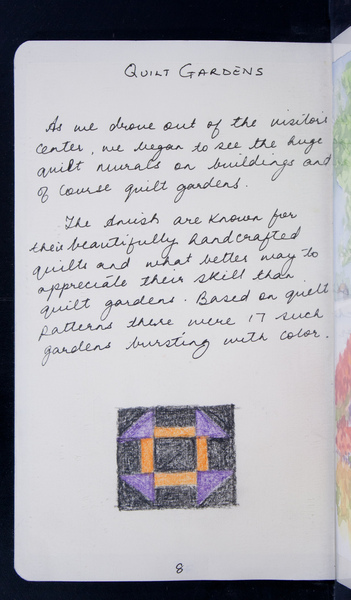 QUILT GARDENS
As we drove out of the visitor's
center, we began to see the huge
quilt murals on buildings and
of course quilt gardens.
The Amish are known for
their beautifully handcrafted
quilts and what better way to
appreciate their skill than
quilt gardens. Based on quilt
patterns there were 17 such
gardens bursting with color.
8